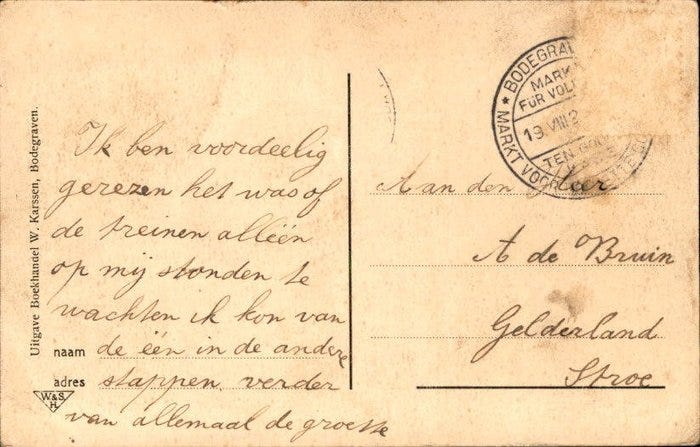 Uitgave Boekhandel W. Karssen, Bodegraven.
Ik ben voordeelig
gerezen het was of
de treinen alléén
op mij stonden te
wachten ik kon van
naam de één in de andere
adres stappen. verder
van allemaal de groette
W&S.
H.
★ BODEGRA
MARK
FÜR VOL
19 VIII 2
TEN
MARKT VOOR
Aan den Heer
A de Bruin
Gelderland
Stroe